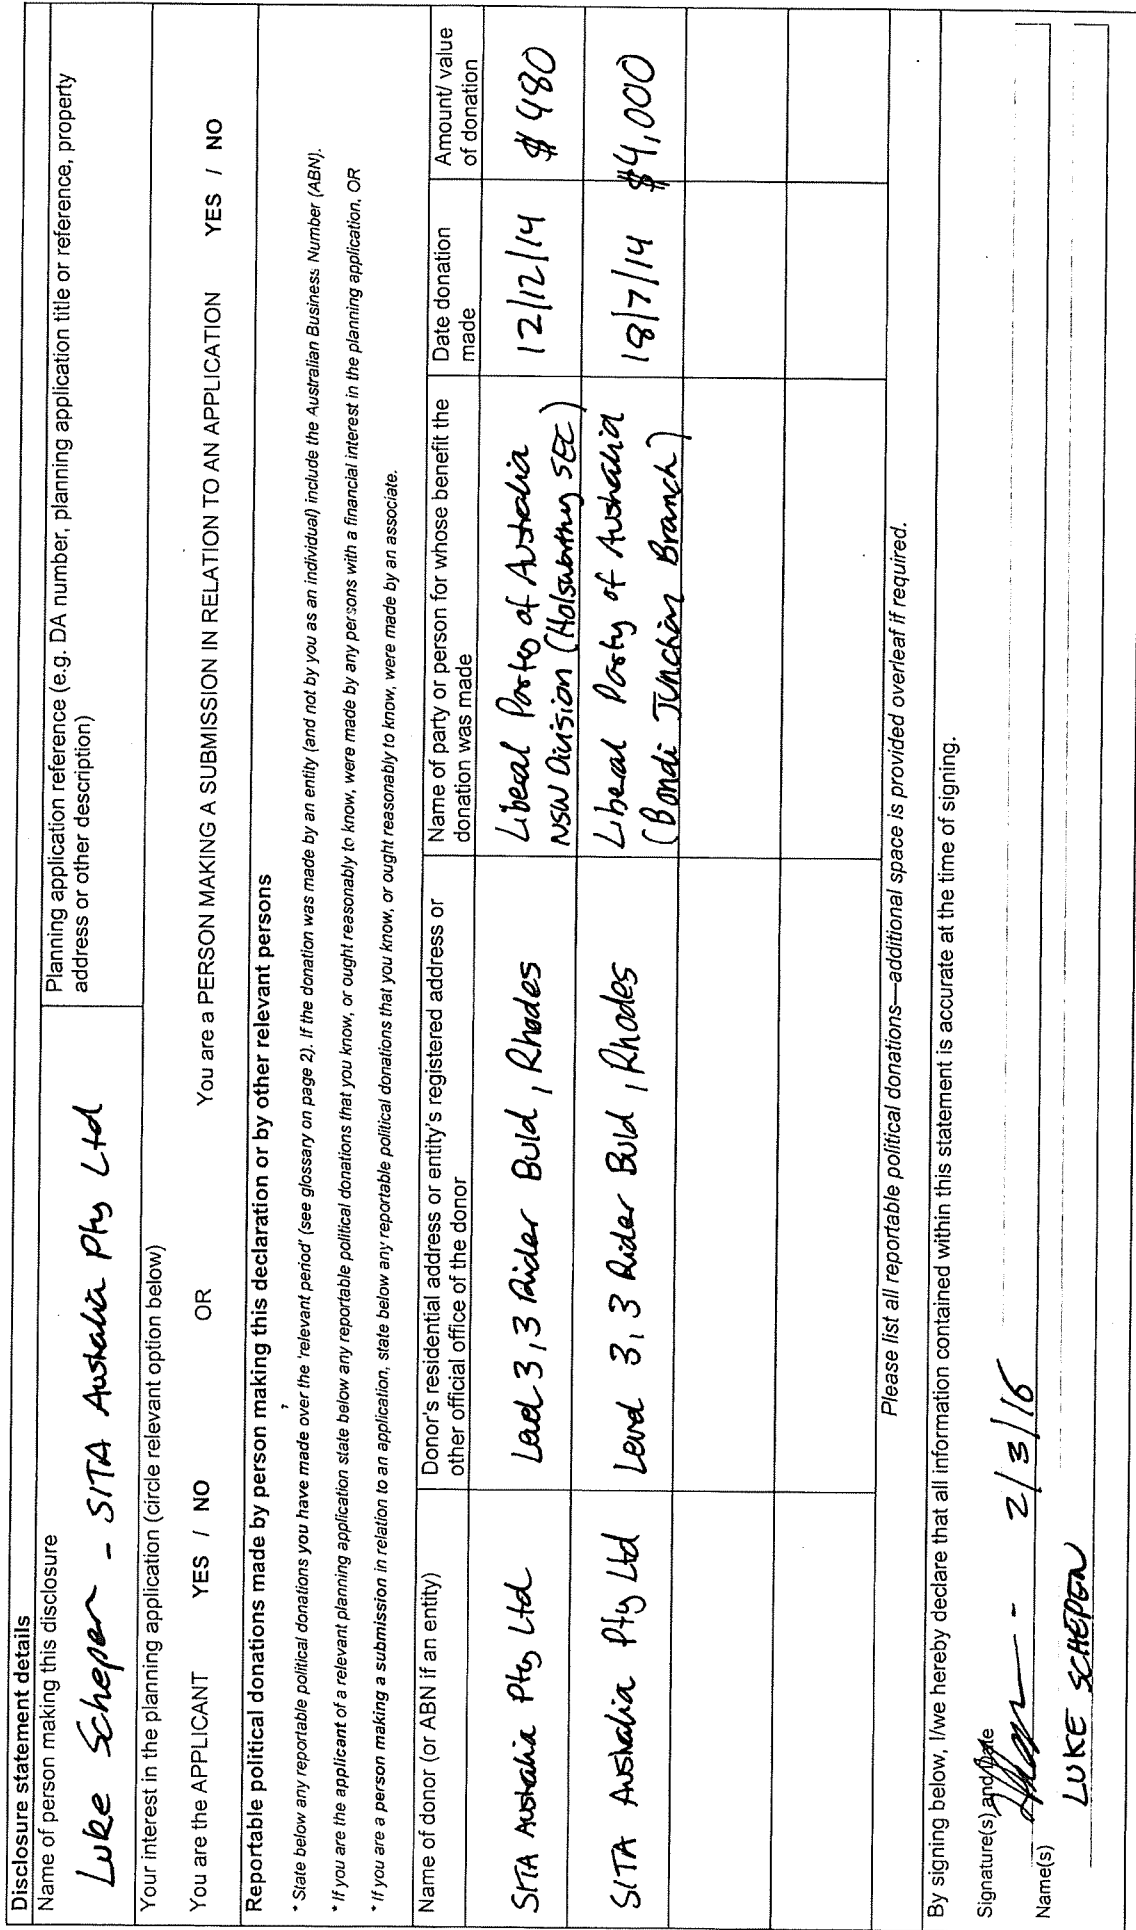 Disclosure statement details
Name of person making this disclosure
Luke Schepen - SITA Australia Pty Ltd
Planning application reference (e.g. DA number, planning application title or reference, property
address or other description)
Your interest in the planning application (circle relevant option below)
You are the APPLICANT YES / NO OR You are a PERSON MAKING A SUBMISSION IN RELATION TO AN APPLICATION YES / NO
Reportable political donations made by person making this declaration or by other relevant persons
* State below any reportable political donations you have made over the 'relevant period' (see glossary on page 2). If the donation was made by an entity (and not by you as an individual) include the Australian Business Number (ABN).
* If you are the applicant of a relevant planning application state below any reportable political donations that you know, or ought reasonably to know, were made by any persons with a financial interest in the planning application, OR
* If you are a person making a submission in relation to an application, state below any reportable political donations that you know, or ought reasonably to know, were made by an associate.
Name of donor (or ABN if an entity)
Donor's residential address or entity's registered address or
other official office of the donor
Name of party or person for whose benefit the
donation was made
Date donation
made
Amount/ value
of donation
SITA Australia Pty Ltd
Level 3, 3 Rider Bvld, Rhodes
Liberal Party of Australia
NSW Division (Holsworthy SEC)
12/12/14
$480
SITA Australia Pty Ltd
Level 3, 3 Rider Bvld, Rhodes
Liberal Party of Australia
(Bondi Junction Branch)
18/7/14
$4,000
Please list all reportable political donations—additional space is provided overleaf if required.
By signing below, I/we hereby declare that all information contained within this statement is accurate at the time of signing.
Signature(s) and Date
2/3/15
Name(s)
LUKE SCHEPEN